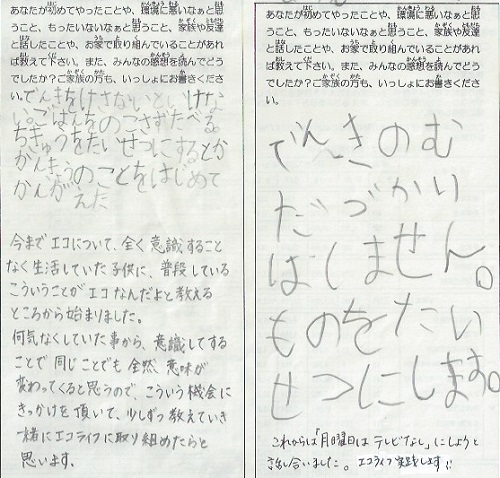 あなたが初めてやったことや、環境に悪いなぁと思
うこと、もったいないなぁと思うこと、家族や友達
と話したことや、お家で取り組んでいることがあれ
ば教えて下さい。また、みんなの感想を読んでどう
でしたか？ご家族の方も、いっしょにお書きくださ
い。でんきをけさないといけな
い。ごはんをのこさずたべる。
ちきゅうをたいせつにするとか
かんきょうのことをはじめて
かんがえた
今までエコについて、全く意識すること
なく生活していた子供に、普段している
こういうことがエコなんだよと教える
ところから始まりました。
何気なくしていた事から、意識してする
ことで同じことでも全然、意味が
変わってくると思うので、こういう機会に
きっかけを頂いて、少しずつ教えていき
一緒にエコライフに取り組めたらと
思います。
あなたが初めてやったことや、環境に悪いなぁと思
うこと、もったいないなぁと思うこと、家族や友達
と話したことや、お家で取り組んでいることがあれ
ば教えて下さい。また、みんなの感想を読んでどう
でしたか？ご家族の方も、いっしょにお書きくださ
い。
でんきのむ
だづかい
はしません。
ものをたい
せつにします。
これからは「月曜日は テレビなし」にしようと
話し合いました。エコライフ実践します!!